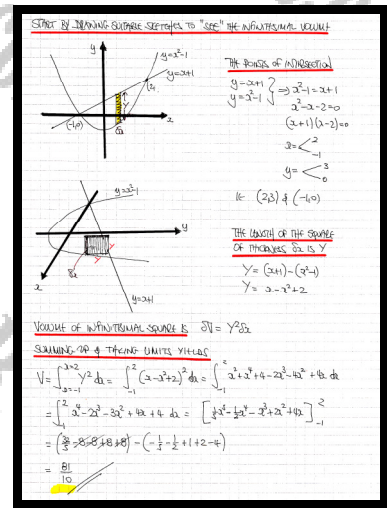 START BY DRAWING SUITABLE SKETCHES TO "SEE" THE INFINITESIMAL VOLUME
y
y=x²-1
y=x+1
(2,3)
Y
(-1,0)
x
δx
THE POINTS OF INTERSECTION
y=x+1
y=x²-1
⇒ x²-1=x+1
x²-x-2=0
(x+1)(x-2)=0
x= < 2
-1
y= < 3
0
IE (2,3) & (-1,0)
y=x²-1
y
Y
Y
δx
x
y=x+1
THE LENGTH OF THE SQUARE
OF THICKNESS δx IS Y
Y = (x+1)-(x²-1)
Y = x-x²+2
VOLUME OF INFINITESIMAL SQUARE IS δV = Y²δx
SUMMING UP & TAKING LIMITS YIELDS
V = ∫_{x=-1}^{x=2} Y² dx = ∫_{-1}^{2} (x-x²+2)² dx = ∫_{-1}^{2} x²+x⁴+4-2x³-4x²+4x dx
= ∫_{-1}^{2} x⁴-2x³-3x²+4x+4 dx = [⅕x⁵-½x⁴-x³+2x²+4x]_{-1}^{2}
= (32/5-8-8+8+8)-(-⅕-½+1+2-4)
= 81/10